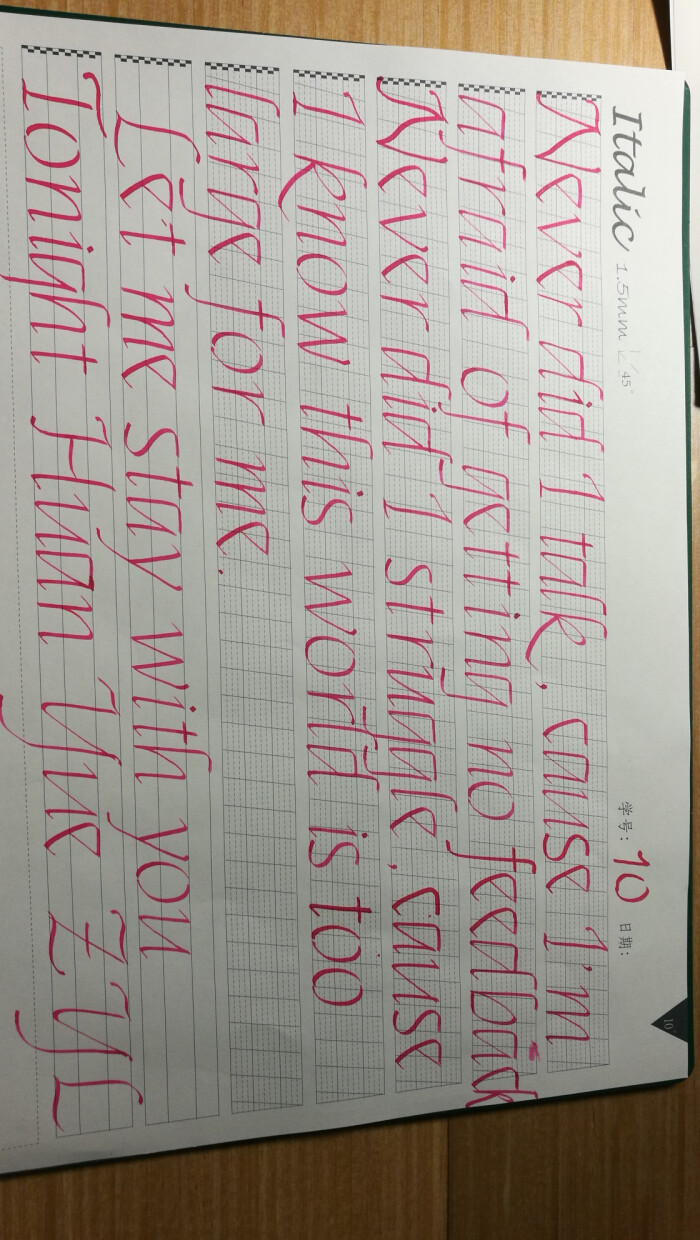 Italic 1.5mm 45°
学号: 10 日期:
10
Never did I talk, cause I'm
afraid of getting no feedback
Never did I struggle, cause
I know this world is too
large for me.
Let me stay with you
Tonight Huan Yue ZYL